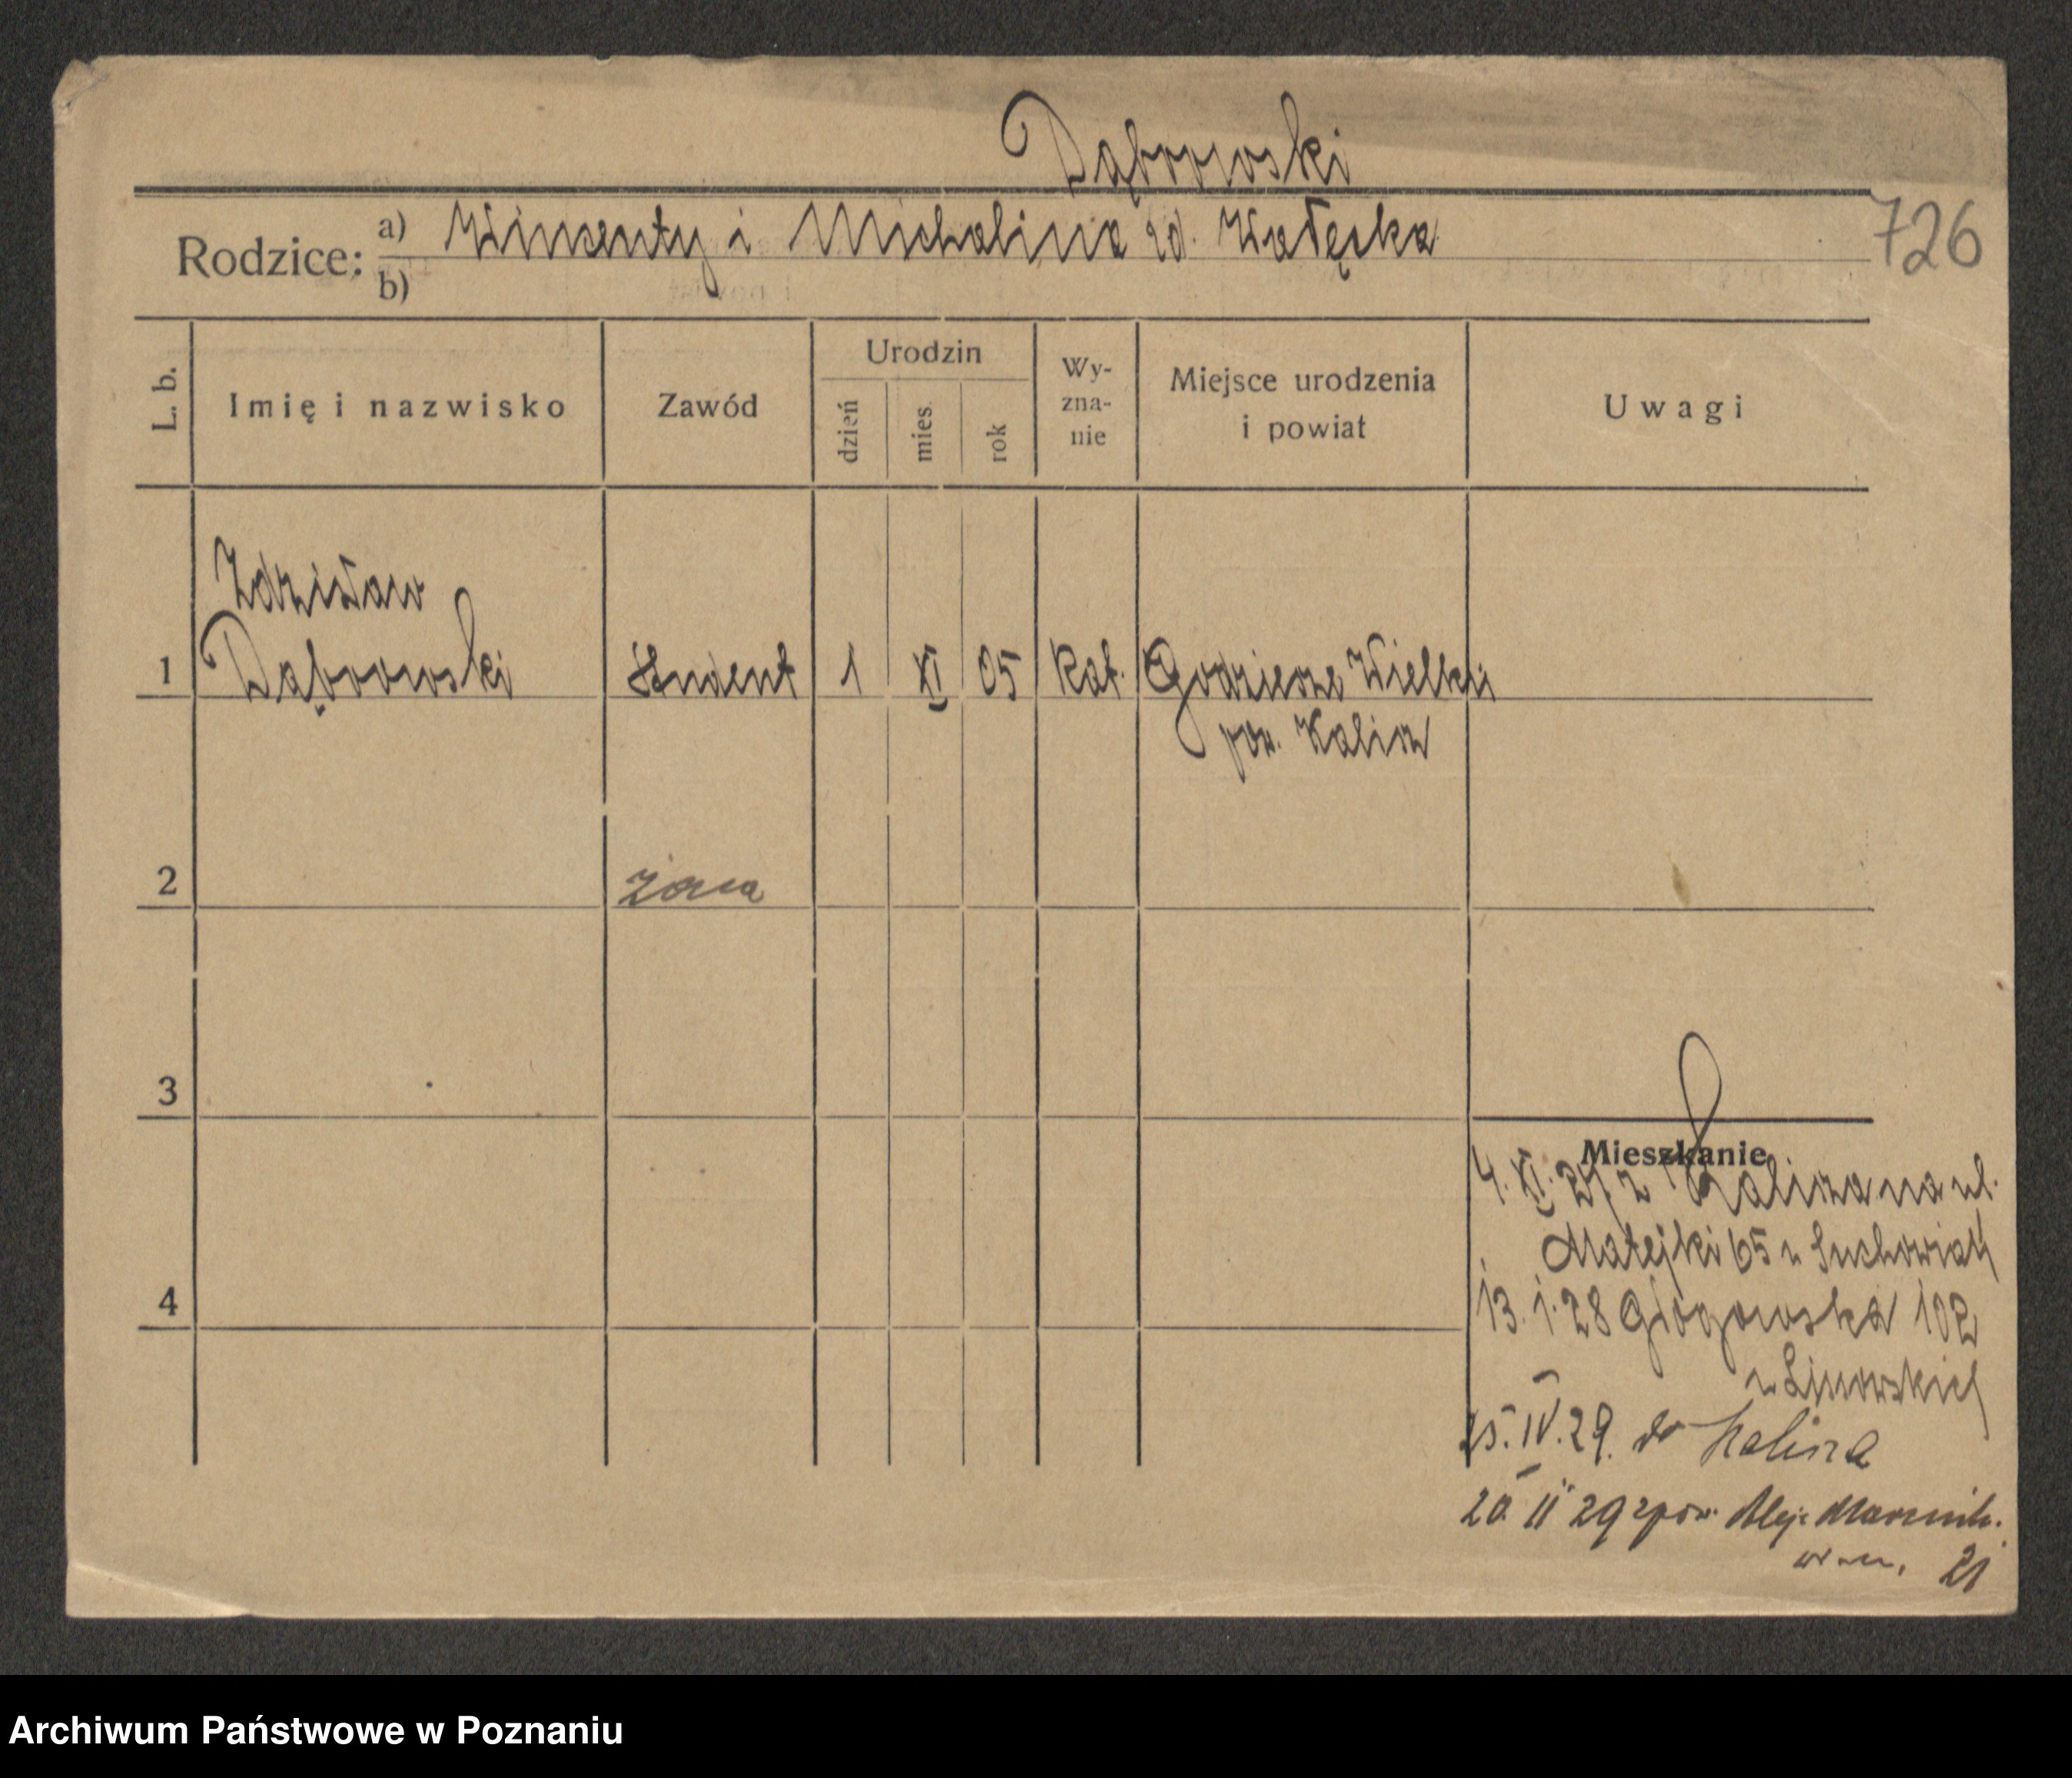 Dąbrowski
726
Rodzice: a) Wincenty i Michalina zd. Wałęska
b)
L. b. Imię i nazwisko Zawód Urodzin dzień mies. rok Wy-zna-nie Miejsce urodzenia i powiat Uwagi
Zdzisław
1 Dąbrowski Student 1 XI 05 kat. Godziesze Wielkie
pow. Kalisz
2 żona
3
Mieszkanie
4. XI. 27. z Kalisza na ul.
Matejki 65 u Suchowiak
4
13. I. 28 Głogowska 102
u Linowskich
25. IV. 29. do Kalisza
20 II 29 zpow. Aleje Marcink.
21
Archiwum Państwowe w Poznaniu